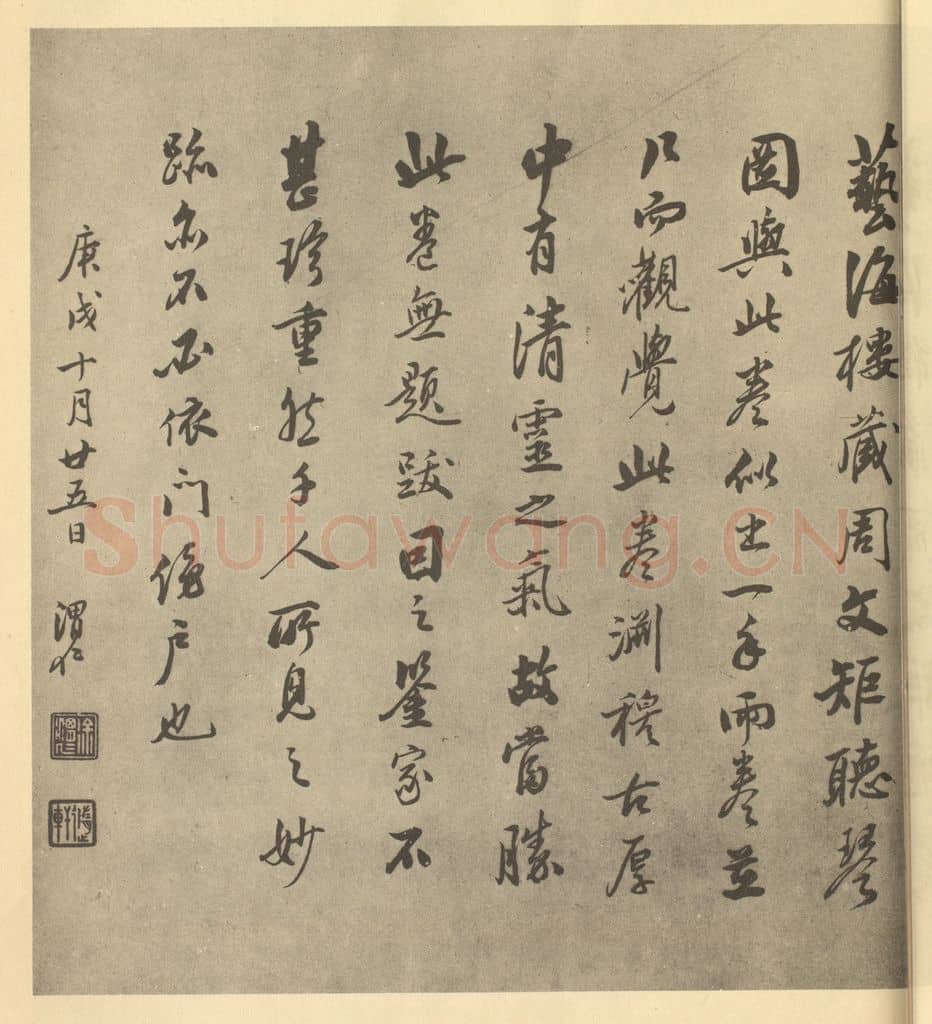 藝海樓藏周文矩聽琴
圖與此卷似出一手兩卷並
几而觀覺此卷淵穆古厚
中有清靈之氣故當勝
此卷無題跋囙之鑒家不
甚珍重然千人所見之妙
跡亦不必依門傍戶也
庚戌十月廿五日 渭仁
徐渭仁
Shufawang.CN